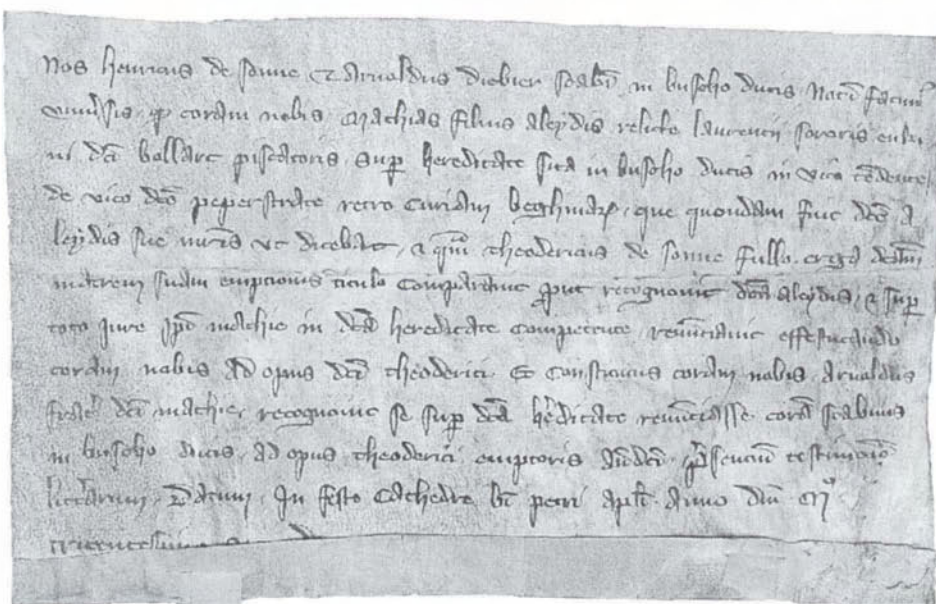 Nos henricus de sonne et Arnoldus dicbier scabini in buscho ducis Notum facimus
vniuersis quod coram nobis Mathias filius aleydis relicte laurencii sororis
dicti bollart piscatoris super hereditate sita in buscho ducis in vico tendente
de vico dicto peperstrate retro curiam beghinarum que quondam fuit dicte a
leydis sue matris vt dicebat et quam theodericus de sonne fullo erga dictam
matrem suam empcionis titulo comparauit prout recognouit dicta aleydis et super
toto iure ipsi mathie in dicta hereditate competente renunciauit effestucando
coram nobis ad opus dicti theoderici Et constitutus coram nobis Arnoldus
frater dicti mathie recognouit se super dicta hereditate renunciasse coram scabinis
in buscho ducis ad opus theoderici emptoris antedicti presencium testimonio
litterarum Datum In festo cathedre beati petri apostoli Anno domini Mo
tricentesimo